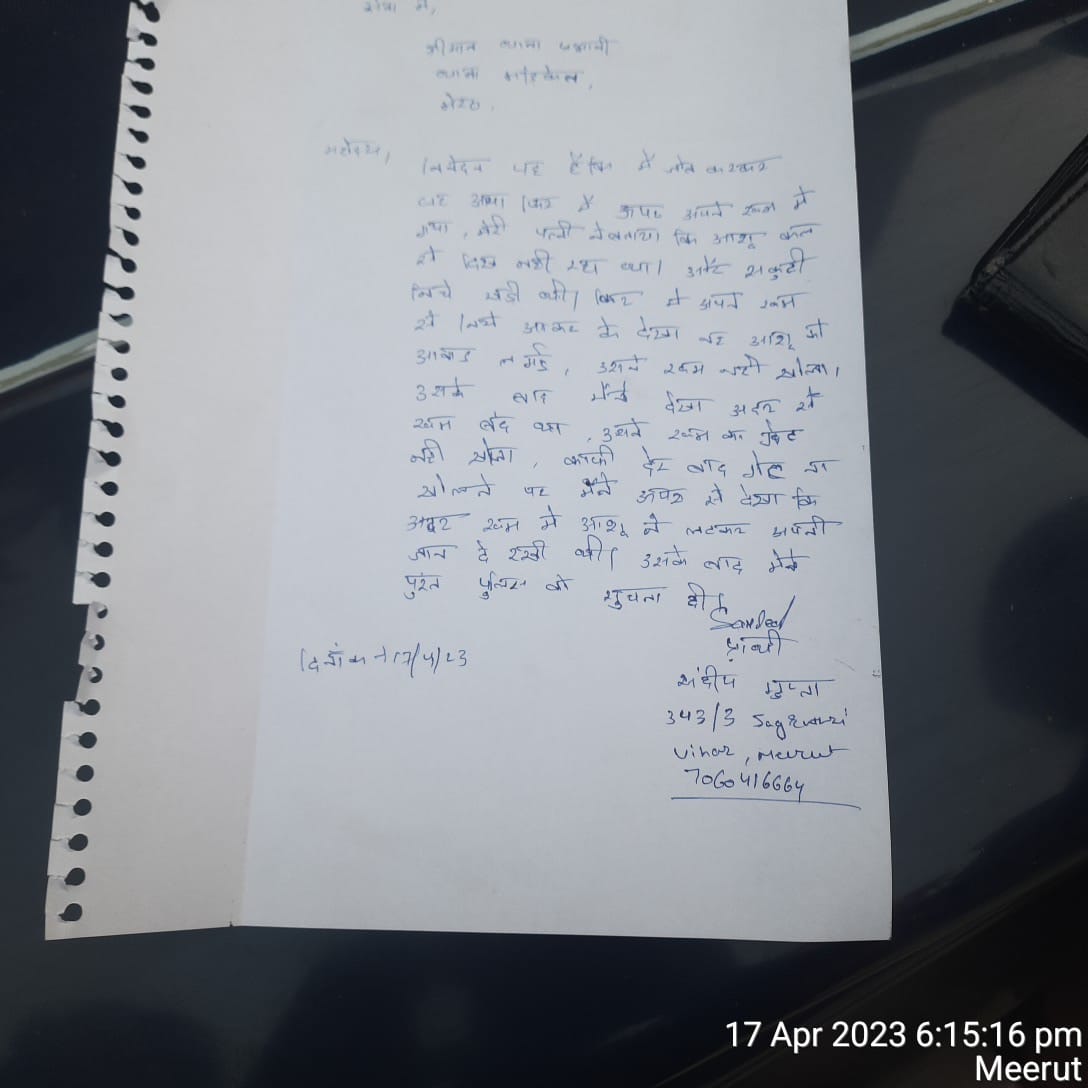 सेवा में,
श्रीमान थाना प्रभारी
थाना
मेरठ,
महोदय,
निवेदन यह है कि मैं जॉब करकर
घर आया फिर मैं ऊपर अपने रूम में
गया, मेरी पत्नी ने बताया कि आशू कल
से दिख नही रहा था। और सकुटी
निचे खडी थी। फिर मे अपने रूम
से निचे आकर के देखा आशू को
आवाज लगाई, उसने रूम नही खोला।
उसके बाद मैंने देखा अन्दर से
रूम बंद था, उसने रूम का गेट
नही खोला, काफी देर बाद गेट ना
खोलने पर मैंने ऊपर से देखा कि
अन्दर रूम में आशू ने लटकर अपनी
जान दे रखी थी। उसके बाद मैने
तुरंत पुलिस को सुचना दी।
Sandeep
प्रार्थी
दिनाँक 17/4/23
संदीप गुप्ता
343/3
Vihar, Meerut
7060416664
17 Apr 2023 6:15:16 pm
Meerut